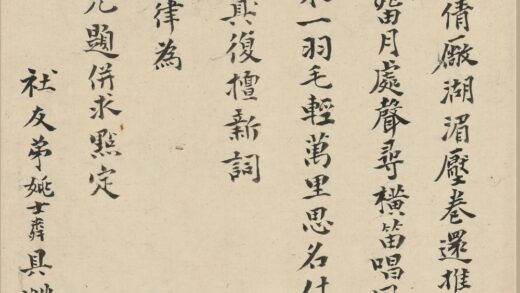 倩廠湖湄壓卷還推
當月處聲尋橫笛唱
一羽毛輕萬里思名
真復擅新詞
律為
題併求點定
社友弟姚士粦具